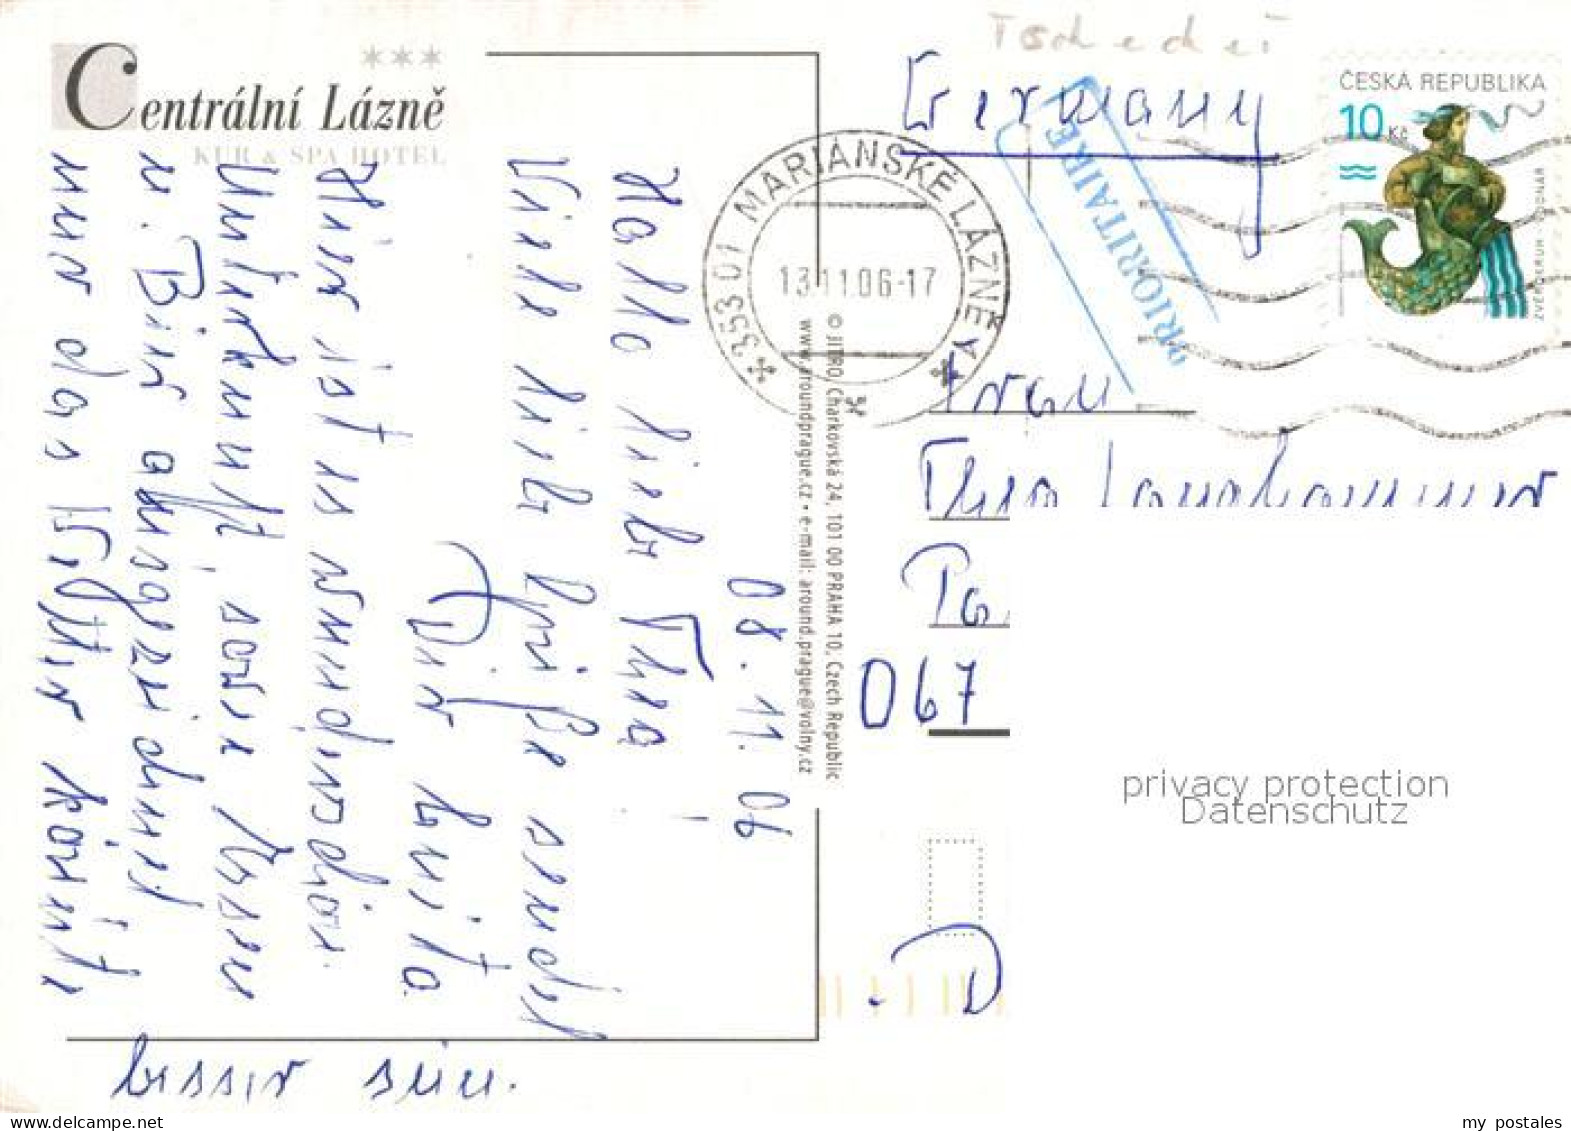 Tschechei
Centrální Lázně
KUR & SPA HOTEL
Germany
PRIORITAIRE
ČESKÁ REPUBLIKA
10 Kč
353 01 MARIÁNSKÉ LÁZNĚ 1
13.11.06-17
08.11.06
Hallo liebe Thea
Viele liebe Grüße sendet
Dir Luita
Hier ist es wunderschön.
Unterkunft, sowie Essen
u. Bier ausgezeichnet
nur das Wetter könnte
besser sein.
© JITRO, Charkovská 24, 101 00 PRAHA 10, Czech Republic
www.aroundprague.cz • e-mail: around.prague@volny.cz
Frau
Thea
Pa
067
D
privacy protection
Datenschutz
my postales